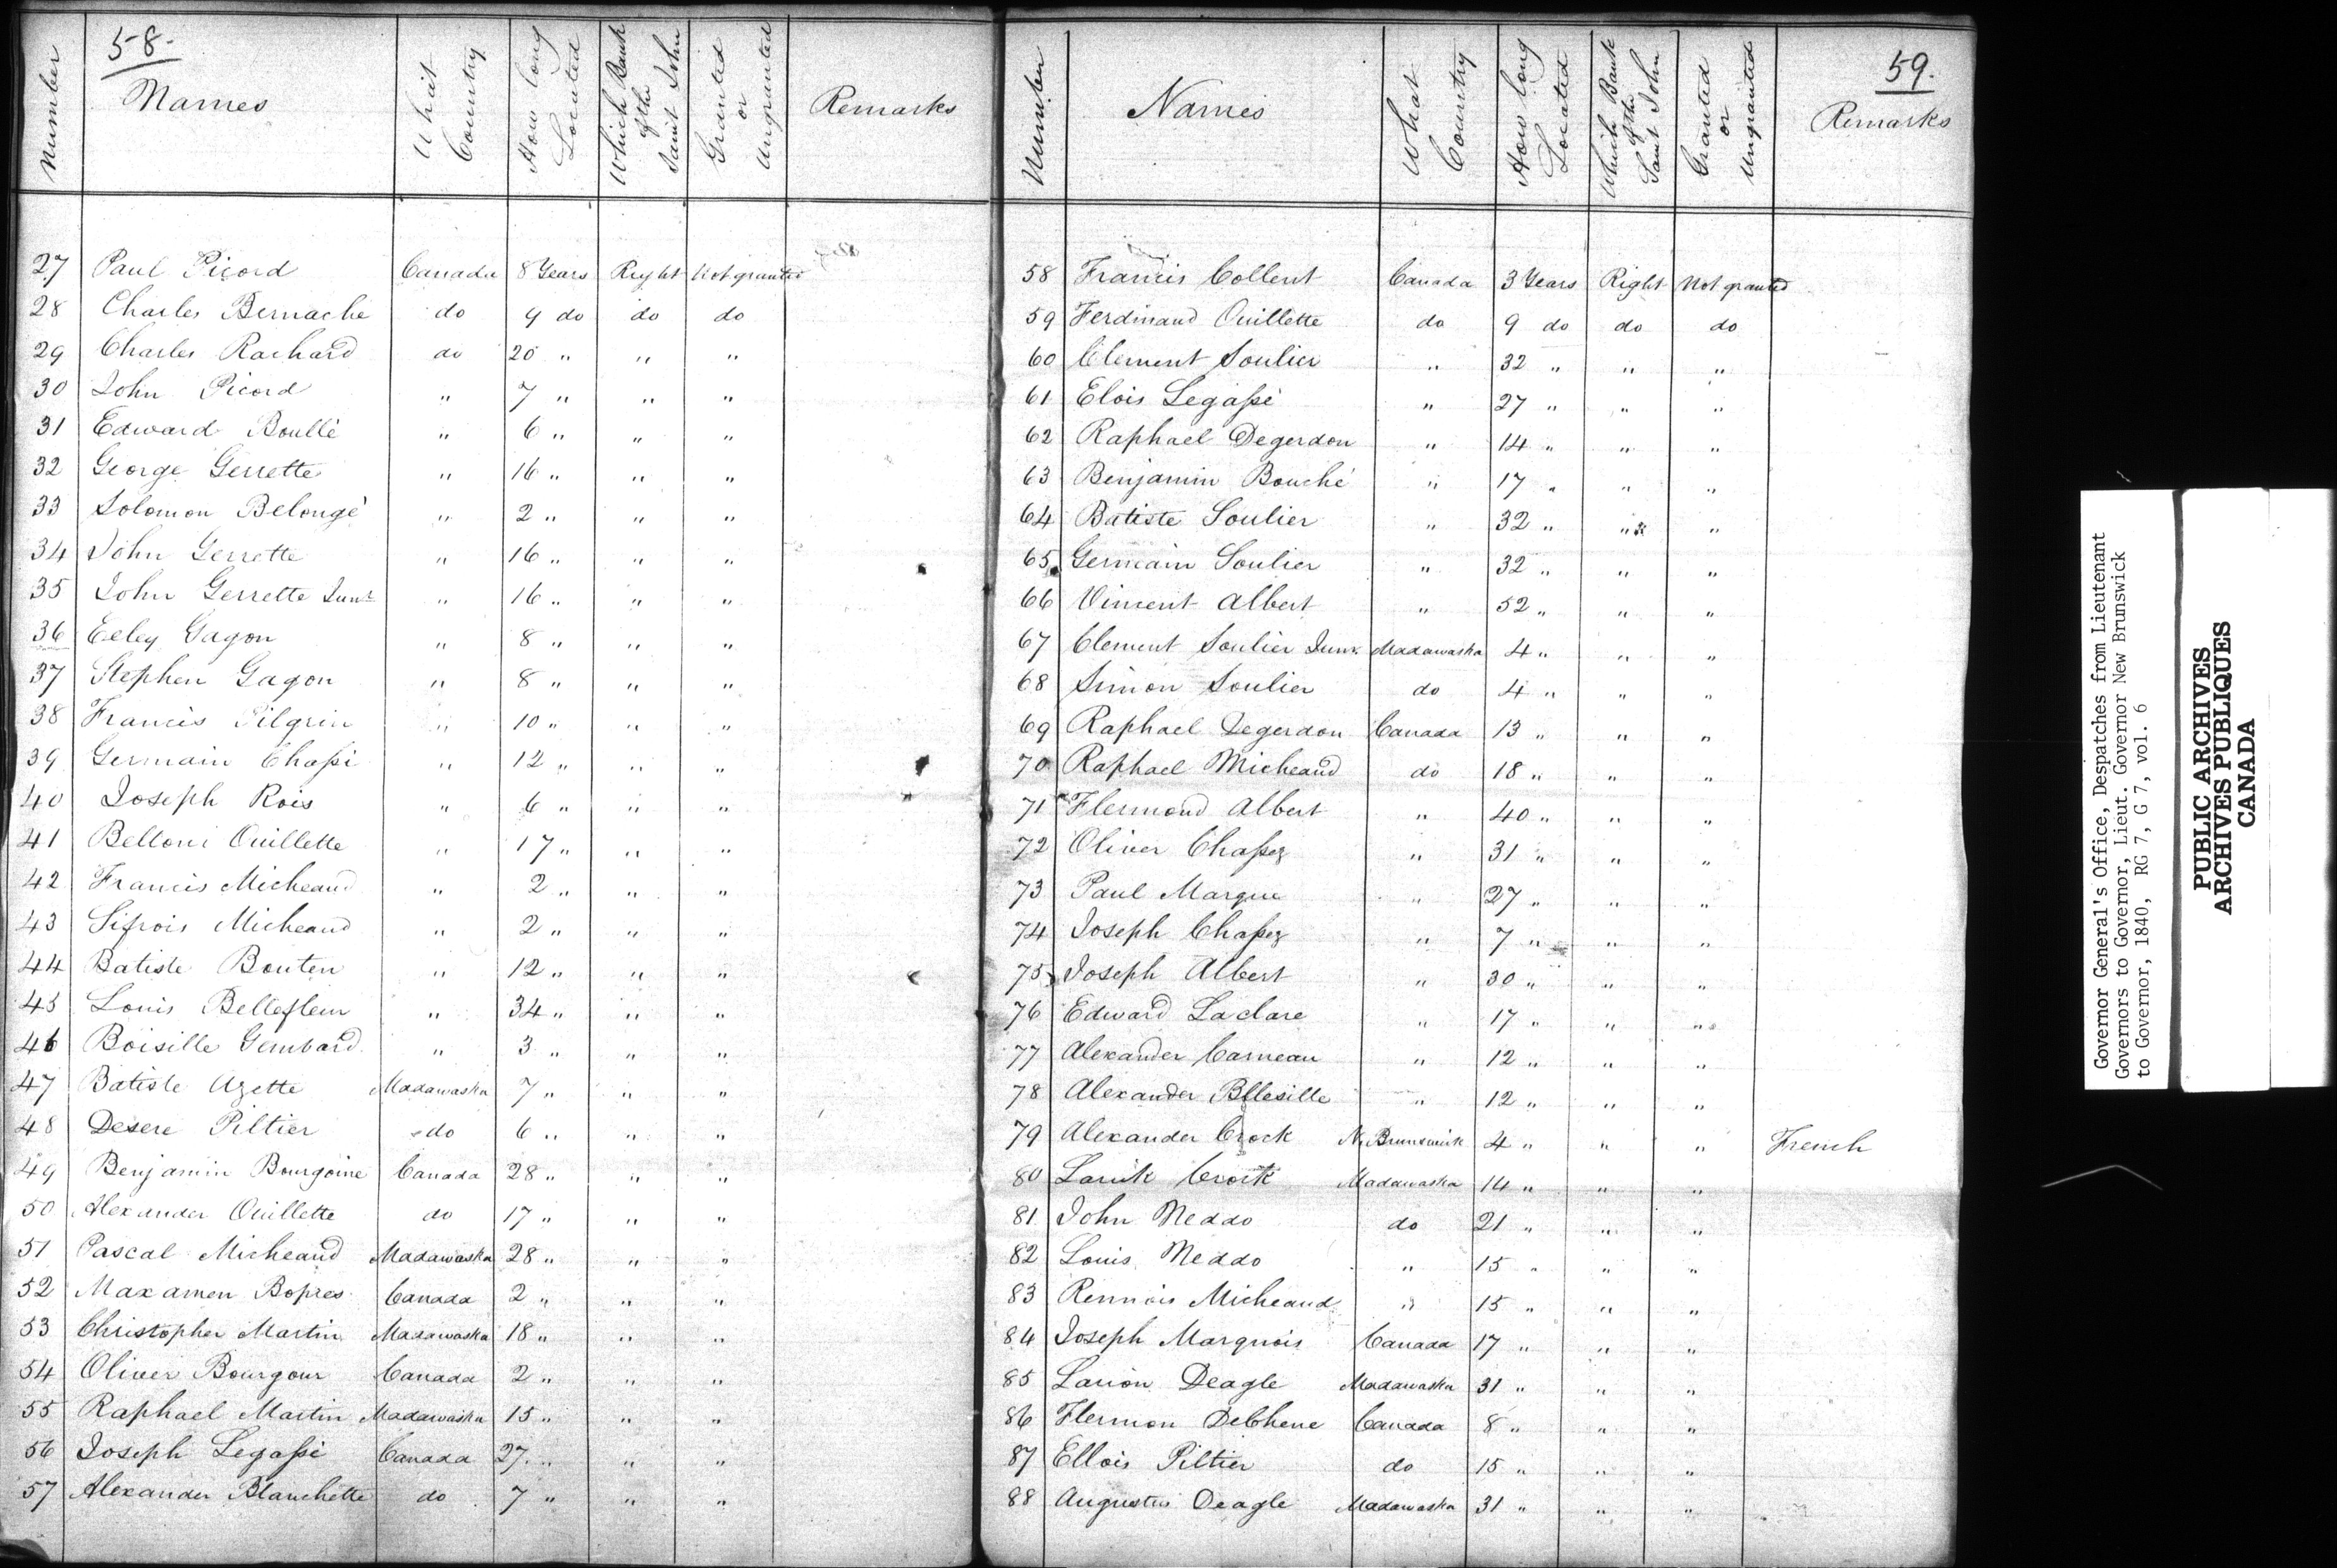 58.
Number Names What Country How long Located Which Bank of the Saint John Granted or Ungranted Remarks
27 Paul Picord Canada 8 Years Right Not granted
28 Charles Bernache do 9 do do do
29 Charles Rachard do 20 " " "
30 John Picord " 7 " " "
31 Edward Boullé " 6 " " "
32 George Gerrette " 16 " " "
33 Solomon Belongé " 2 " " "
34 John Gerrette " 16 " " "
35 John Gerrette Junr " 16 " " "
36 Eeley Gagon " 8 " " "
37 Stephen Gagon " 8 " " "
38 Francis Pilgrin " 10 " " "
39 Germain Chassi " 12 " " "
40 Joseph Rois " 6 " " "
41 Belloni Ouillette " 17 " " "
42 Francis Micheaud " 2 " " "
43 Sifrois Micheaud " 2 " " "
44 Batiste Bouten " 12 " " "
45 Louis Bellefleur " 34 " " "
46 Boisille Gembard " 3 " " "
47 Batiste Azette Madawaska 7 " " "
48 Desere Piltier do 6 " " "
49 Benjamin Bourgoine Canada 28 " " "
50 Alexander Ouillette do 17 " " "
51 Pascal Micheaud Madawaska 28 " " "
52 Maxamen Bopres Canada 2 " " "
53 Christopher Martin Madawaska 18 " " "
54 Oliver Bourgour Canada 2 " " "
55 Raphael Martin Madawaska 15 " " "
56 Joseph Legassi Canada 27 " " "
57 Alexander Blanchette do 7 " " "
59.
Number Names What Country How long Located Which Bank of the Saint John Granted or Ungranted Remarks
58 Francis Collent Canada 3 Years Right Not granted
59 Ferdinand Ouillette do 9 do do do
60 Clement Soulier " 32 " " "
61 Elois Legassé " 27 " " "
62 Raphael Degerdon " 14 " " "
63 Benjamin Bouché " 17 " " "
64 Batiste Soulier " 32 " " "
65 Germain Soulier " 32 " " "
66 Vincent Albert " 52 " " "
67 Clement Soulier Junr. Madawaska 4 " " "
68 Simon Soulier do 4 " " "
69 Raphael Degerdon Canada 13 " " "
70 Raphael Micheaud do 18 " " "
71 Flermond Albert " 40 " " "
72 Oliver Chassez " 31 " " "
73 Paul Marque " 27 " " "
74 Joseph Chassez " 7 " " "
75 Joseph Albert " 30 " " "
76 Edward Laclare " 17 " " "
77 Alexander Carneau " 12 " " "
78 Alexander Bllesille " 12 " " "
79 Alexander Crock N. Brunswick 4 " " " French
80 Larik Crock Madawaska 14 " " "
81 John Neddo do 21 " " "
82 Louis Neddo " 15 " " "
83 Rennois Micheaud " 15 " " "
84 Joseph Marquois Canada 17 " " "
85 Larion Deagle Madawaska 31 " " "
86 Flermon DeChene Canada 8 " " "
87 Ellois Piltier do 15 " " "
88 Augustus Deagle Madawaska 31 " " "
Governor General's Office, Despatches from Lieutenant
Governors to Governor, Lieut. Governor New Brunswick
to Governor, 1840, RG 7, G 7, vol. 6
PUBLIC ARCHIVES
ARCHIVES PUBLIQUES
CANADA